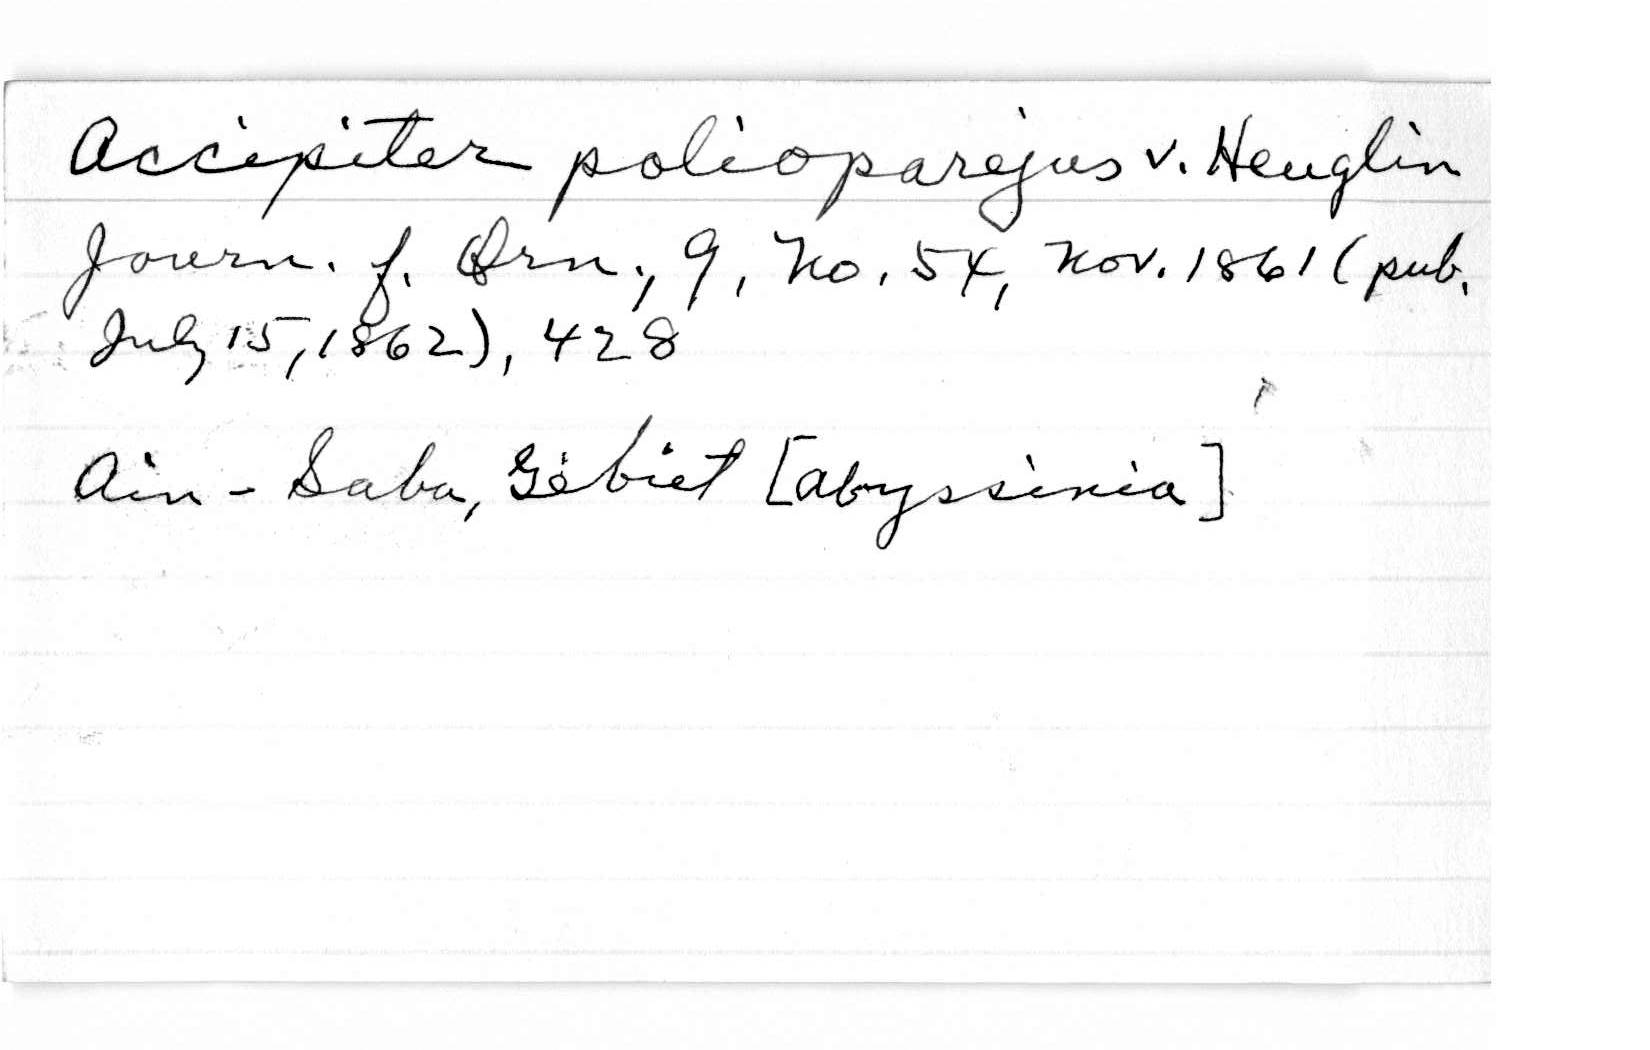 Accipiter polioparejus v. Heuglin
Journ. f. Orn., 9, No. 54, Nov. 1861 (pub.
July 15, 1862), 428
Ain-Saba, Gebiet [Abyssinia]